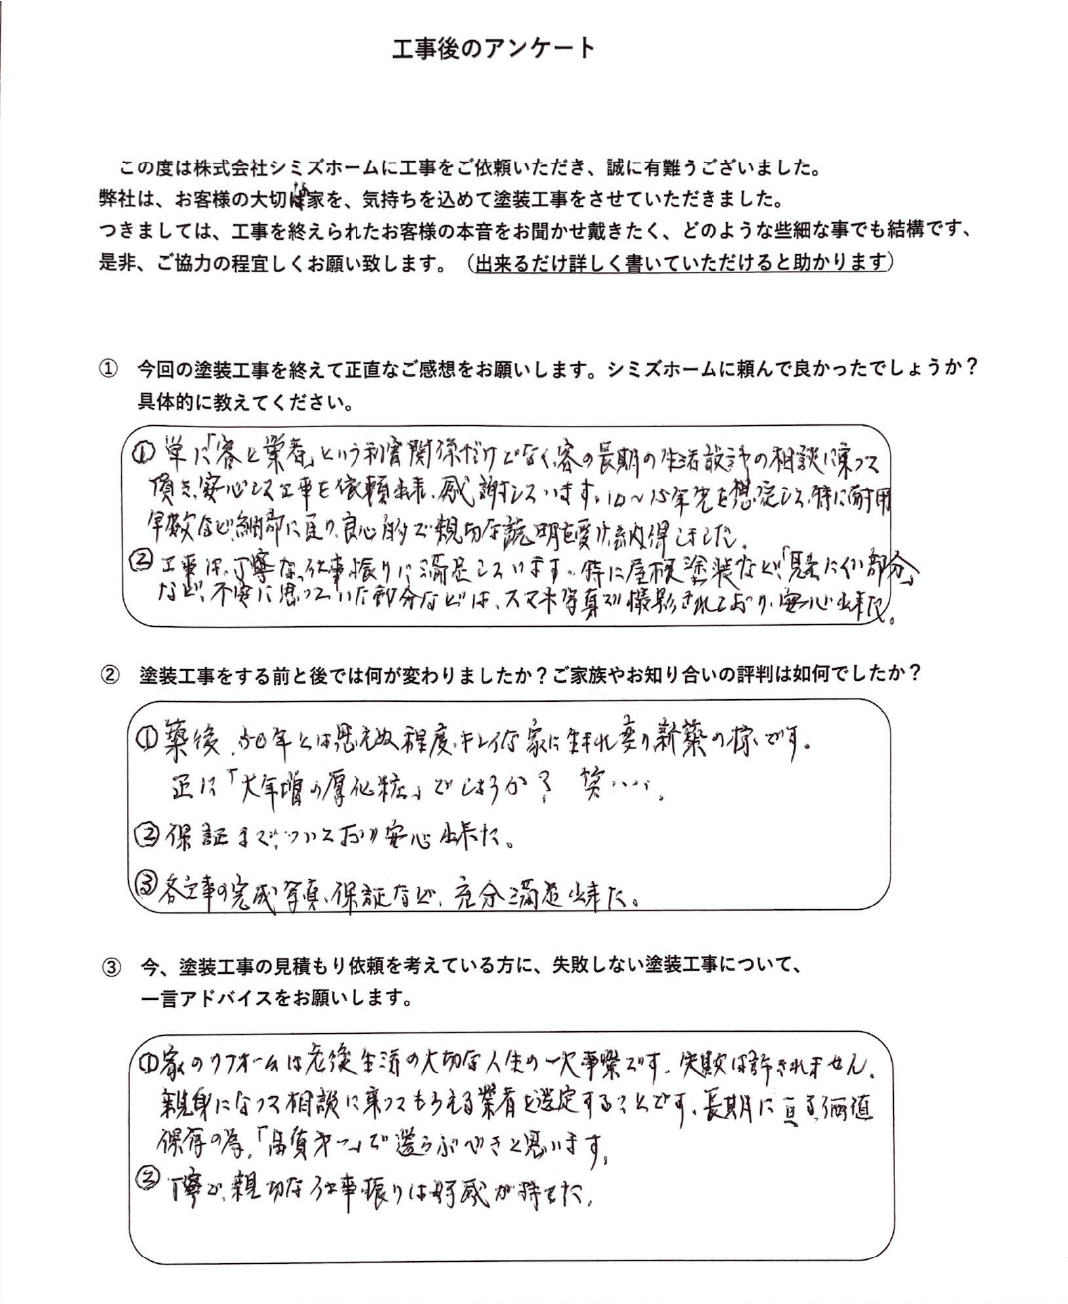 工事後のアンケート
この度は株式会社シミズホームに工事をご依頼いただき、誠に有難うございました。
弊社は、お客様の大切な家を、気持ちを込めて塗装工事をさせていただきました。
つきましては、工事を終えられたお客様の本音をお聞かせ戴きたく、どのような些細な事でも結構です、
是非、ご協力の程宜しくお願い致します。（出来るだけ詳しく書いていただけると助かります）
① 今回の塗装工事を終えて正直なご感想をお願いします。シミズホームに頼んで良かったでしょうか？
具体的に教えてください。
① 単に「客と業者」という利害関係だけでなく、客の長期の生活設計の相談に乗って
頂き、安心して工事を依頼出来、感謝しています。10〜15年先を想定して、特に耐用
年数など、細部に亘り、良心的で親切な説明を受け、納得しました。
② 工事は、丁寧な仕事振りに満足しています。特に屋根塗装など、「見えにくい部分」
など、不安に思っていた部分などは、スマホ写真で撮影されており、安心出来た。
② 塗装工事をする前と後では何が変わりましたか？ご家族やお知り合いの評判は如何でしたか？
① 築後、50年とは思えぬ程度、キレイな家に生まれ変り新築の様です。
正に「大年増の厚化粧」でしょうか？ 笑・・・。
② 保証までついており安心出来た。
③ 各工事の完成写真、保証など、充分満足出来た。
③ 今、塗装工事の見積もり依頼を考えている方に、失敗しない塗装工事について、
一言アドバイスをお願いします。
① 家のリフォームは老後生活の大切な人生の一大事業です。失敗は許されません。
親身になって相談に乗ってもらえる業者を選定することです。長期に亘る価値
保存の為、「品質第一」で選らぶべきと思います。
② 丁寧で、親切な仕事振りは好感が持てた。